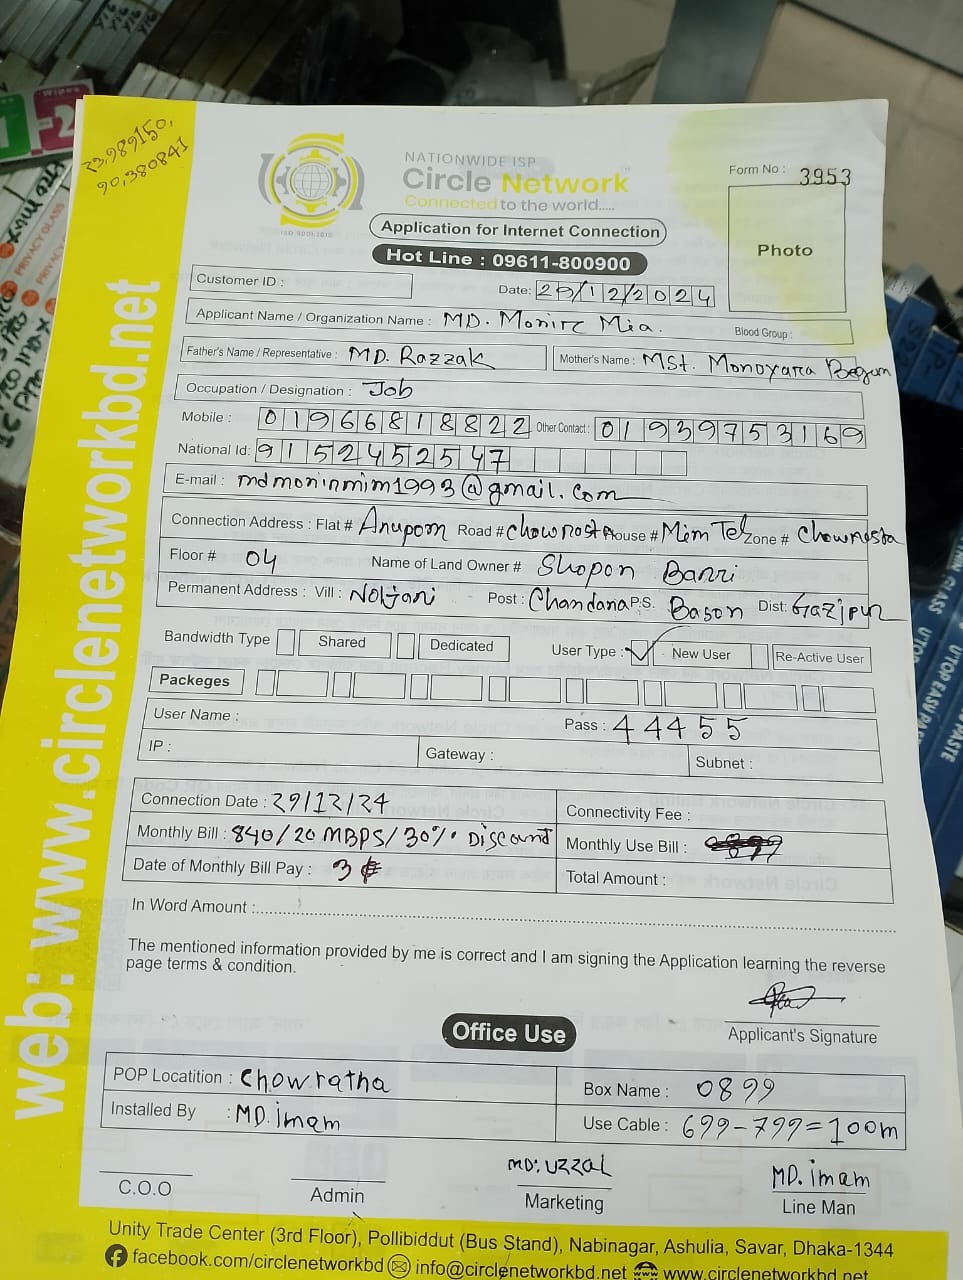 23.989150,
90.380841
NATIONWIDE ISP
Circle Network
Connected to the world.....
ISO 9001:2015
Application for Internet Connection
Hot Line : 09611-800900
Form No : 3953
Photo
Customer ID :
Date: 29/12/2024
Applicant Name / Organization Name : MD. Monire Mia. Blood Group :
Father's Name / Representative : MD. Razzak Mother's Name : MSt. Monoyara Begum
Occupation / Designation : Job
Mobile : 01966818822 Other Contact : 01939753169
National Id: 9152452547
E-mail : mdmoninmim1993@gmail.com
Connection Address : Flat # Anupom Road # Chowrasta House # Mim Tel Zone # Chowrasta
Floor # 04 Name of Land Owner # Shopon Banri
Permanent Address : Vill : Noljani Post : Chandana P.S. Bason Dist: Gazipur
Bandwidth Type Shared Dedicated User Type : ✓ New User Re-Active User
Packeges
User Name : Pass : 44455
IP : Gateway : Subnet :
Connection Date : 29/12/24 Connectivity Fee :
Monthly Bill : 840/20 MBPS/30% Discount Monthly Use Bill :
Date of Monthly Bill Pay : 3 Total Amount :
In Word Amount :
The mentioned information provided by me is correct and I am signing the Application learning the reverse
page terms & condition.
Applicant's Signature
Office Use
POP Locatition : Chowratha Box Name : 0899
Installed By : MD. imam Use Cable : 699-799=100m
C.O.O Admin MD: UZZAL Marketing MD. imam Line Man
Unity Trade Center (3rd Floor), Pollibiddut (Bus Stand), Nabinagar, Ashulia, Savar, Dhaka-1344
facebook.com/circlenetworkbd info@circlenetworkbd.net www.circlenetworkbd.net
web: www.circlenetworkbd.net
PRIVACY GLASS